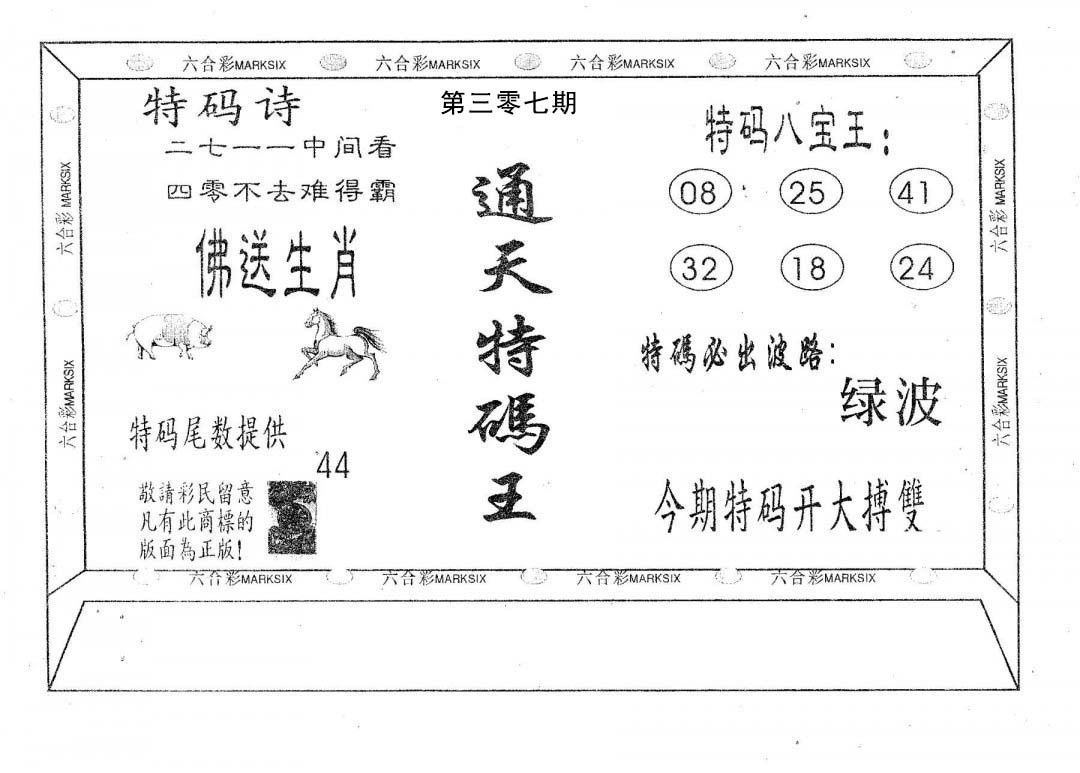 六合彩MARKSIX 六合彩MARKSIX 六合彩MARKSIX 六合彩MARKSIX
六合彩 MARKSIX
六合彩MARKSIX
特码诗
二七一一中间看
四零不去难得霸
佛送生肖
特码尾数提供
44
敬請彩民留意
凡有此商標的
版面為正版!
第三零七期
通天特碼王
特码八宝王:
08 25 41
32 18 24
特碼必出波路:
绿波
今期特码开大搏雙
六合彩 MARKSIX
六合彩MARKSIX
六合彩MARKSIX 六合彩MARKSIX 六合彩MARKSIX 六合彩MARKSIX